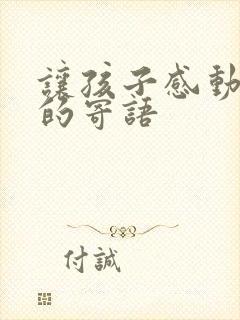 讓孩子感動
的寄語
付誠